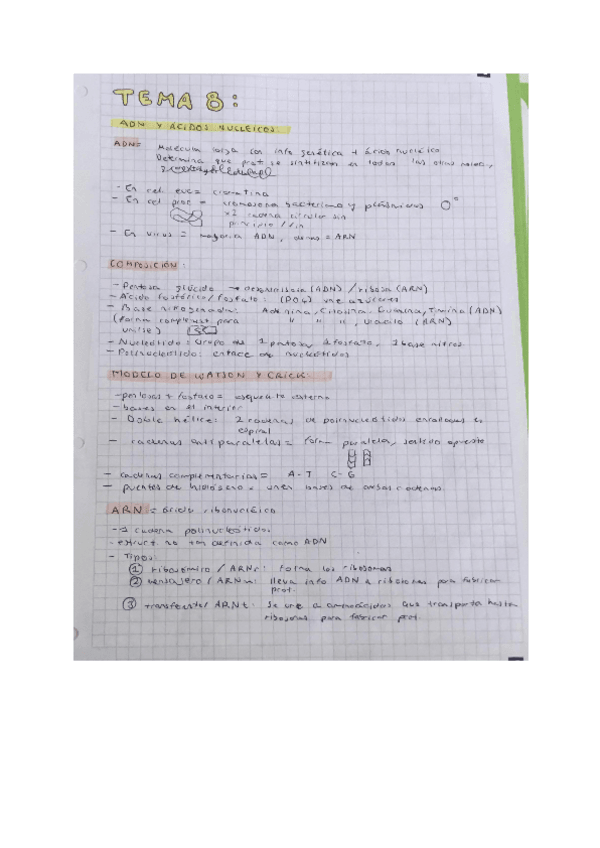 TEMA 8:
ADN Y ÁCIDOS NUCLEICOS:
ADN= Molécula larga con info genética + ácido nucleico
Determina que prot se sintetizan en todos los otros
- En cel. euc = cromatina
- En cel proc = cromosoma bacteriano y plásmidos
x2 cadena circular sin
- En virus = mayoría ADN, demás = ARN
COMPOSICIÓN:
- Pentosa glúcido → desoxirribosa (ADN) / ribosa (ARN)
- Ácido fosfórico / fosfato: (PO4) une azúcares
- Base nitrogenada: Adenina, Citosina, Guanina, Timina (ADN)
(forma complement para " " ", Uracilo (ARN)
unirse)
- Nucleótido = Grupo de 1 pentosa, 1 fosfato, 1 base nitros
- Polinucleótido: enlace de nucleótidos
MODELO DE WATSON Y CRICK
- pentosas + fosfato = esqueleto externo
- bases en el interior
- Doble hélice: 2 cadenas de polinucleótidos enrolladas en
espiral
- cadenas antiparalelas = form paralela, sentido opuesto
- cadenas complementarias = A-T C-G
- puentes de hidrógeno = unen bases de ambas cadenas.
ARN = ácido ribonucleico
- 1 cadena polinucleótido.
- estruct. no tan definida como ADN
- Tipos:
① ribosómico / ARNr: forma los ribosomas
② mensajero / ARNm: lleva info ADN a ribosomas para fabricar
prot.
③ transferente / ARNt: Se une a aminoácidos que transporta hasta
ribosomas para fabricar prot.